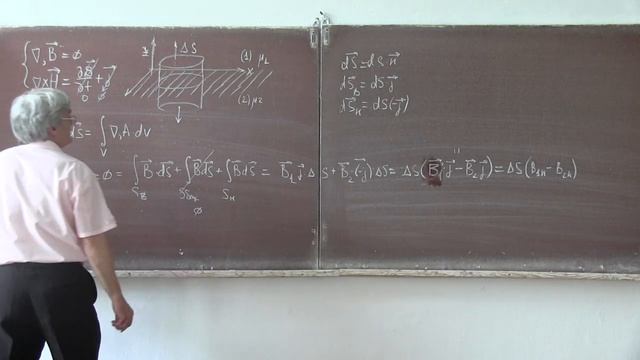 ∇, B⃗ = ∅
∇×H⃗ = ∂D⃗/∂t + j⃗
0 0
ΔS
x
(1) μ₁
(2) μ₂
dS⃗ = ∫ ∇, A dv
V
= ∅ = ∫ B⃗ dS⃗ + ∫ B⃗ dS⃗ + ∫ B⃗ dS⃗ = B⃗₁ j⃗ ΔS + B⃗₂(-j⃗) ΔS = ΔS(B⃗₁ j⃗ - B⃗₂ j⃗) = ΔS(B₁ₙ - B₂ₙ)
∅
dS⃗ = dS n⃗
dS⃗ = dS j⃗
dS⃗ = dS(-j⃗)